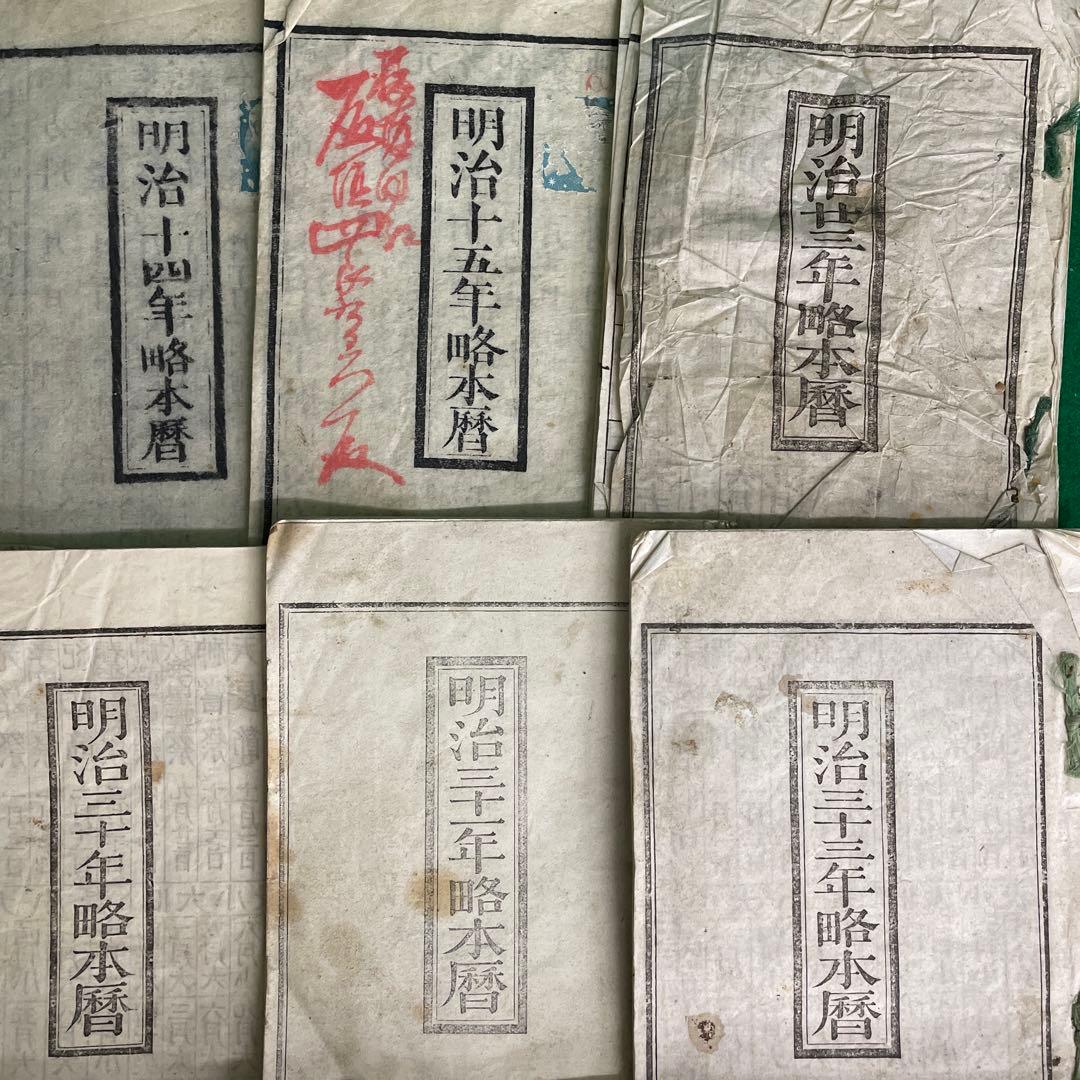 明治十四年略本暦
明治十五年略本暦
明治廿三年略本暦
明治三十年略本暦
明治三十一年略本暦
明治三十三年略本暦